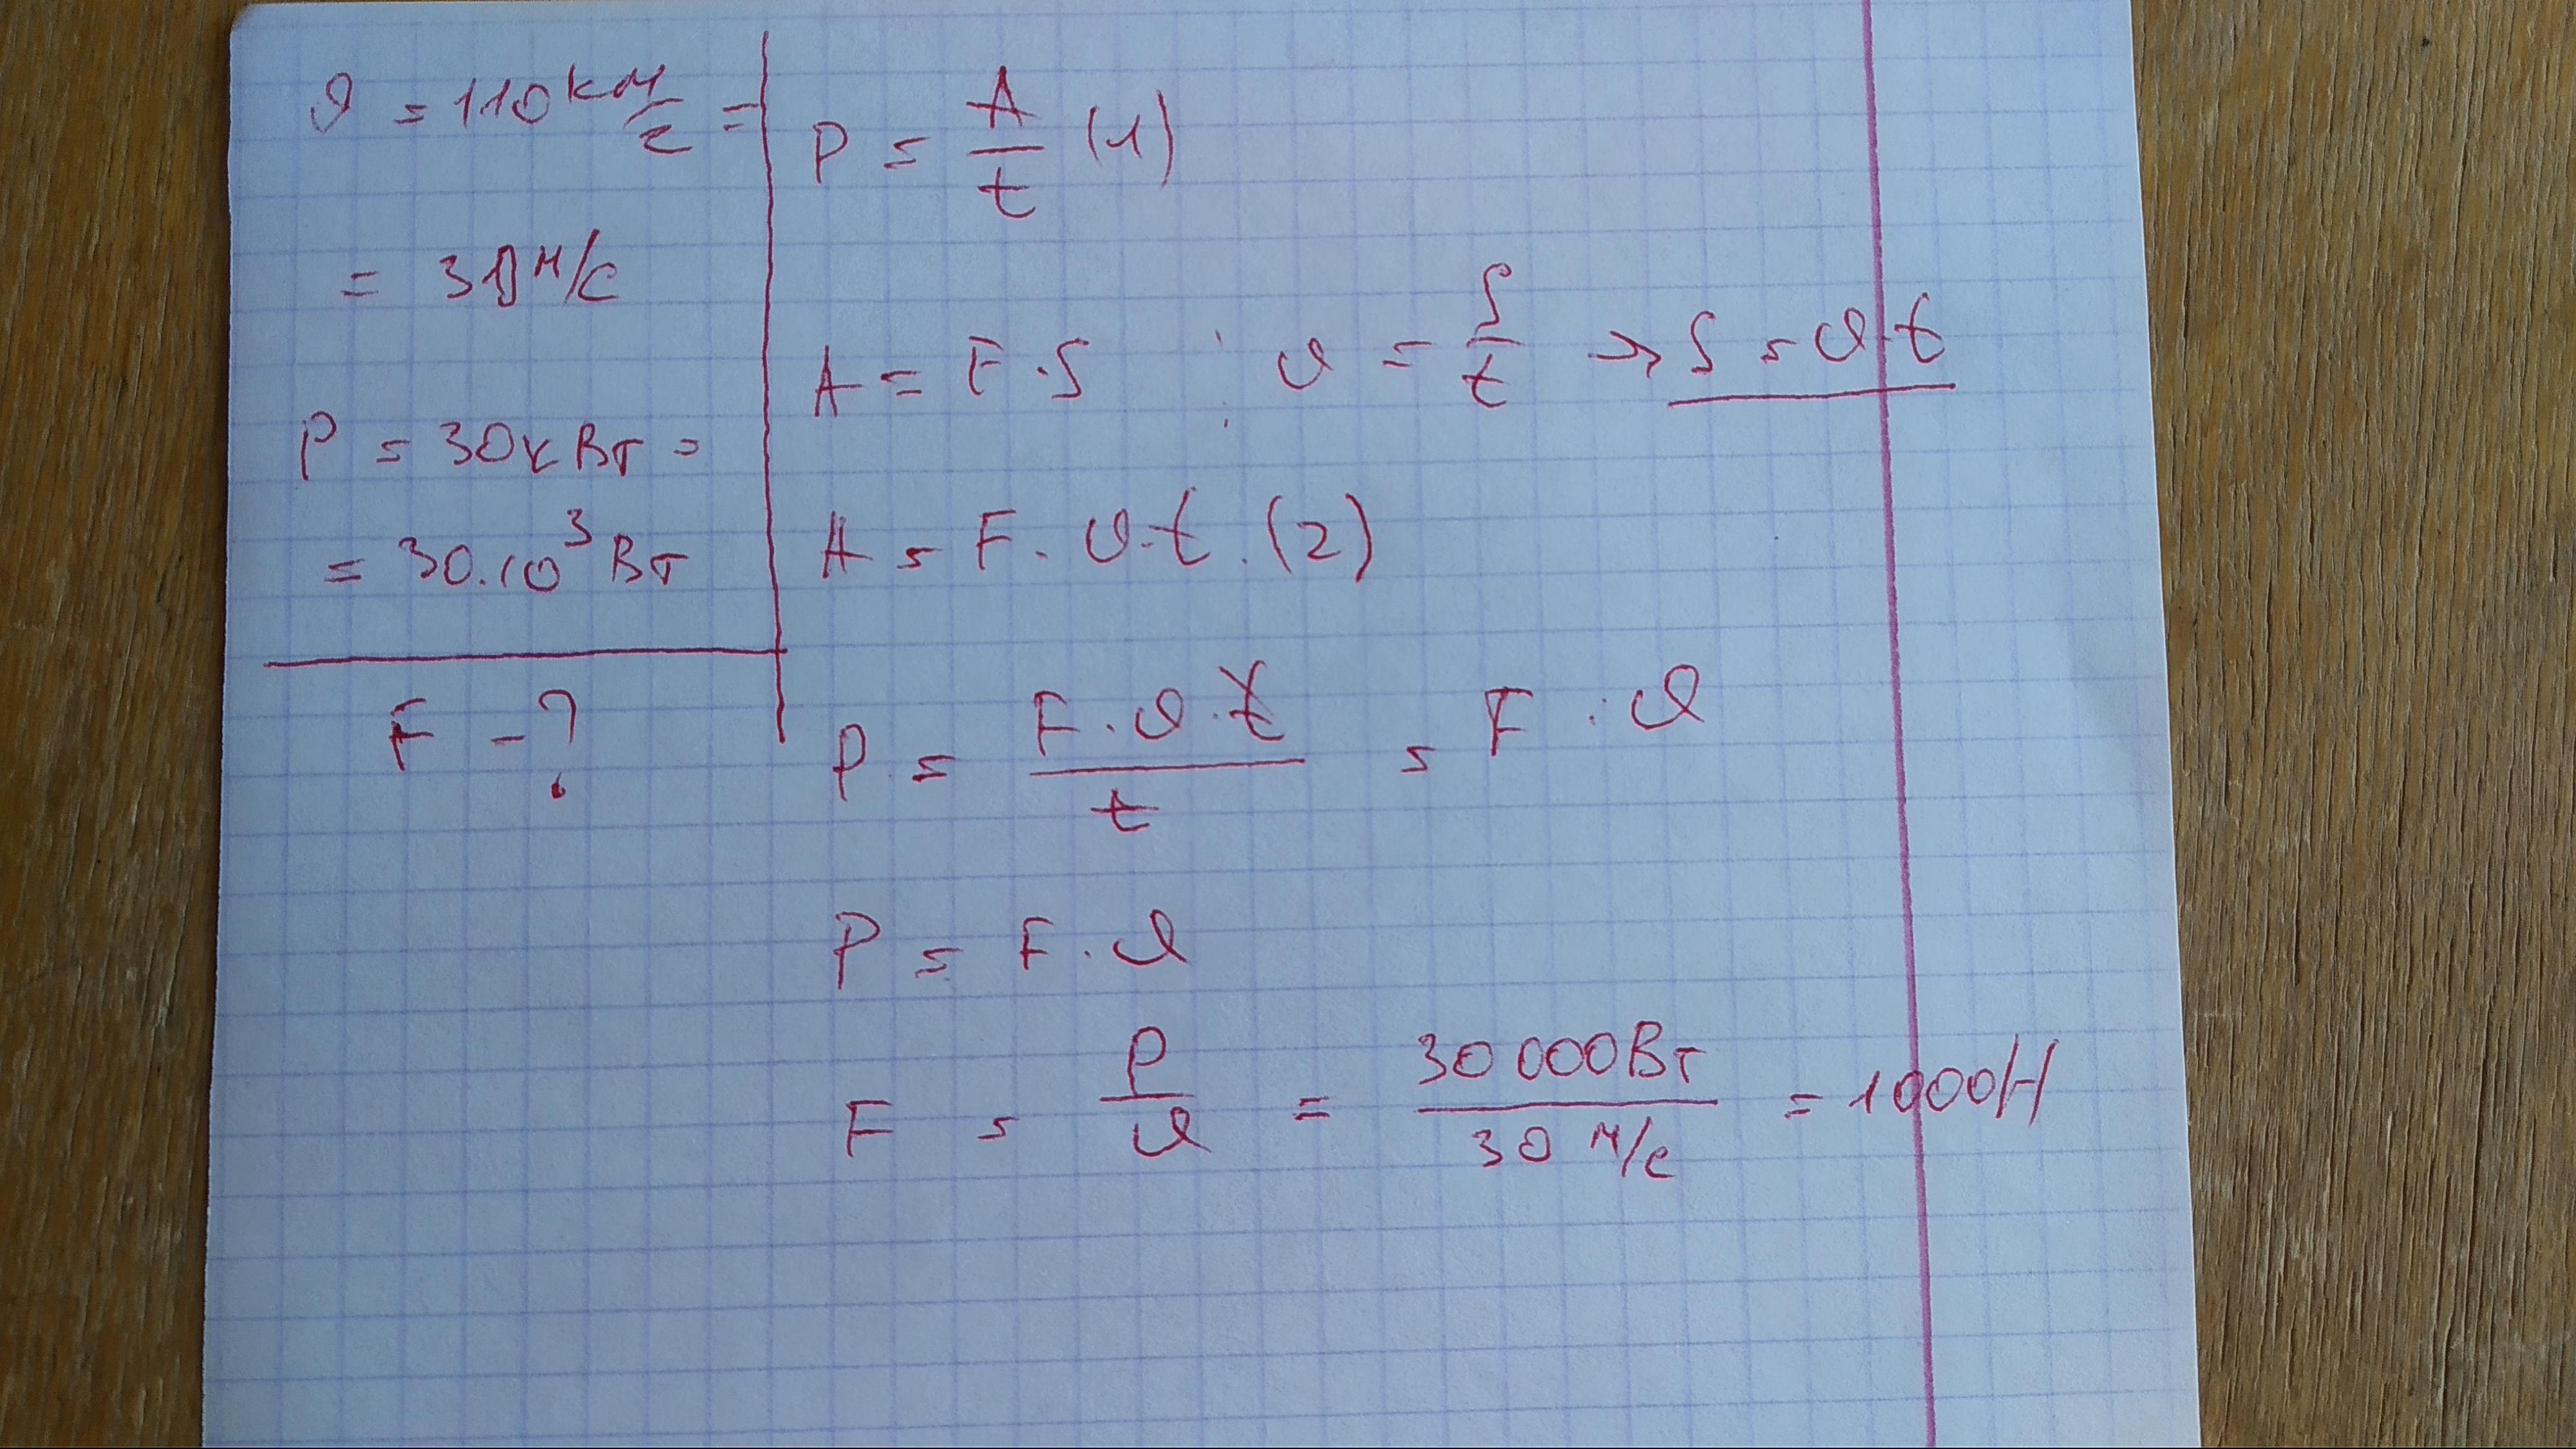 υ = 110 км/г =
= 30 м/с
P = 30 к Вт =
= 30.10³ Вт
F - ?
P = A/t (1)
A = F · S ; υ = S/t → S = υ·t
A = F · υ·t. (2)
P = F · υ · t / t = F · υ
P = F · υ
F = P/υ = 30 000 Вт / 30 м/с = 1000 Н